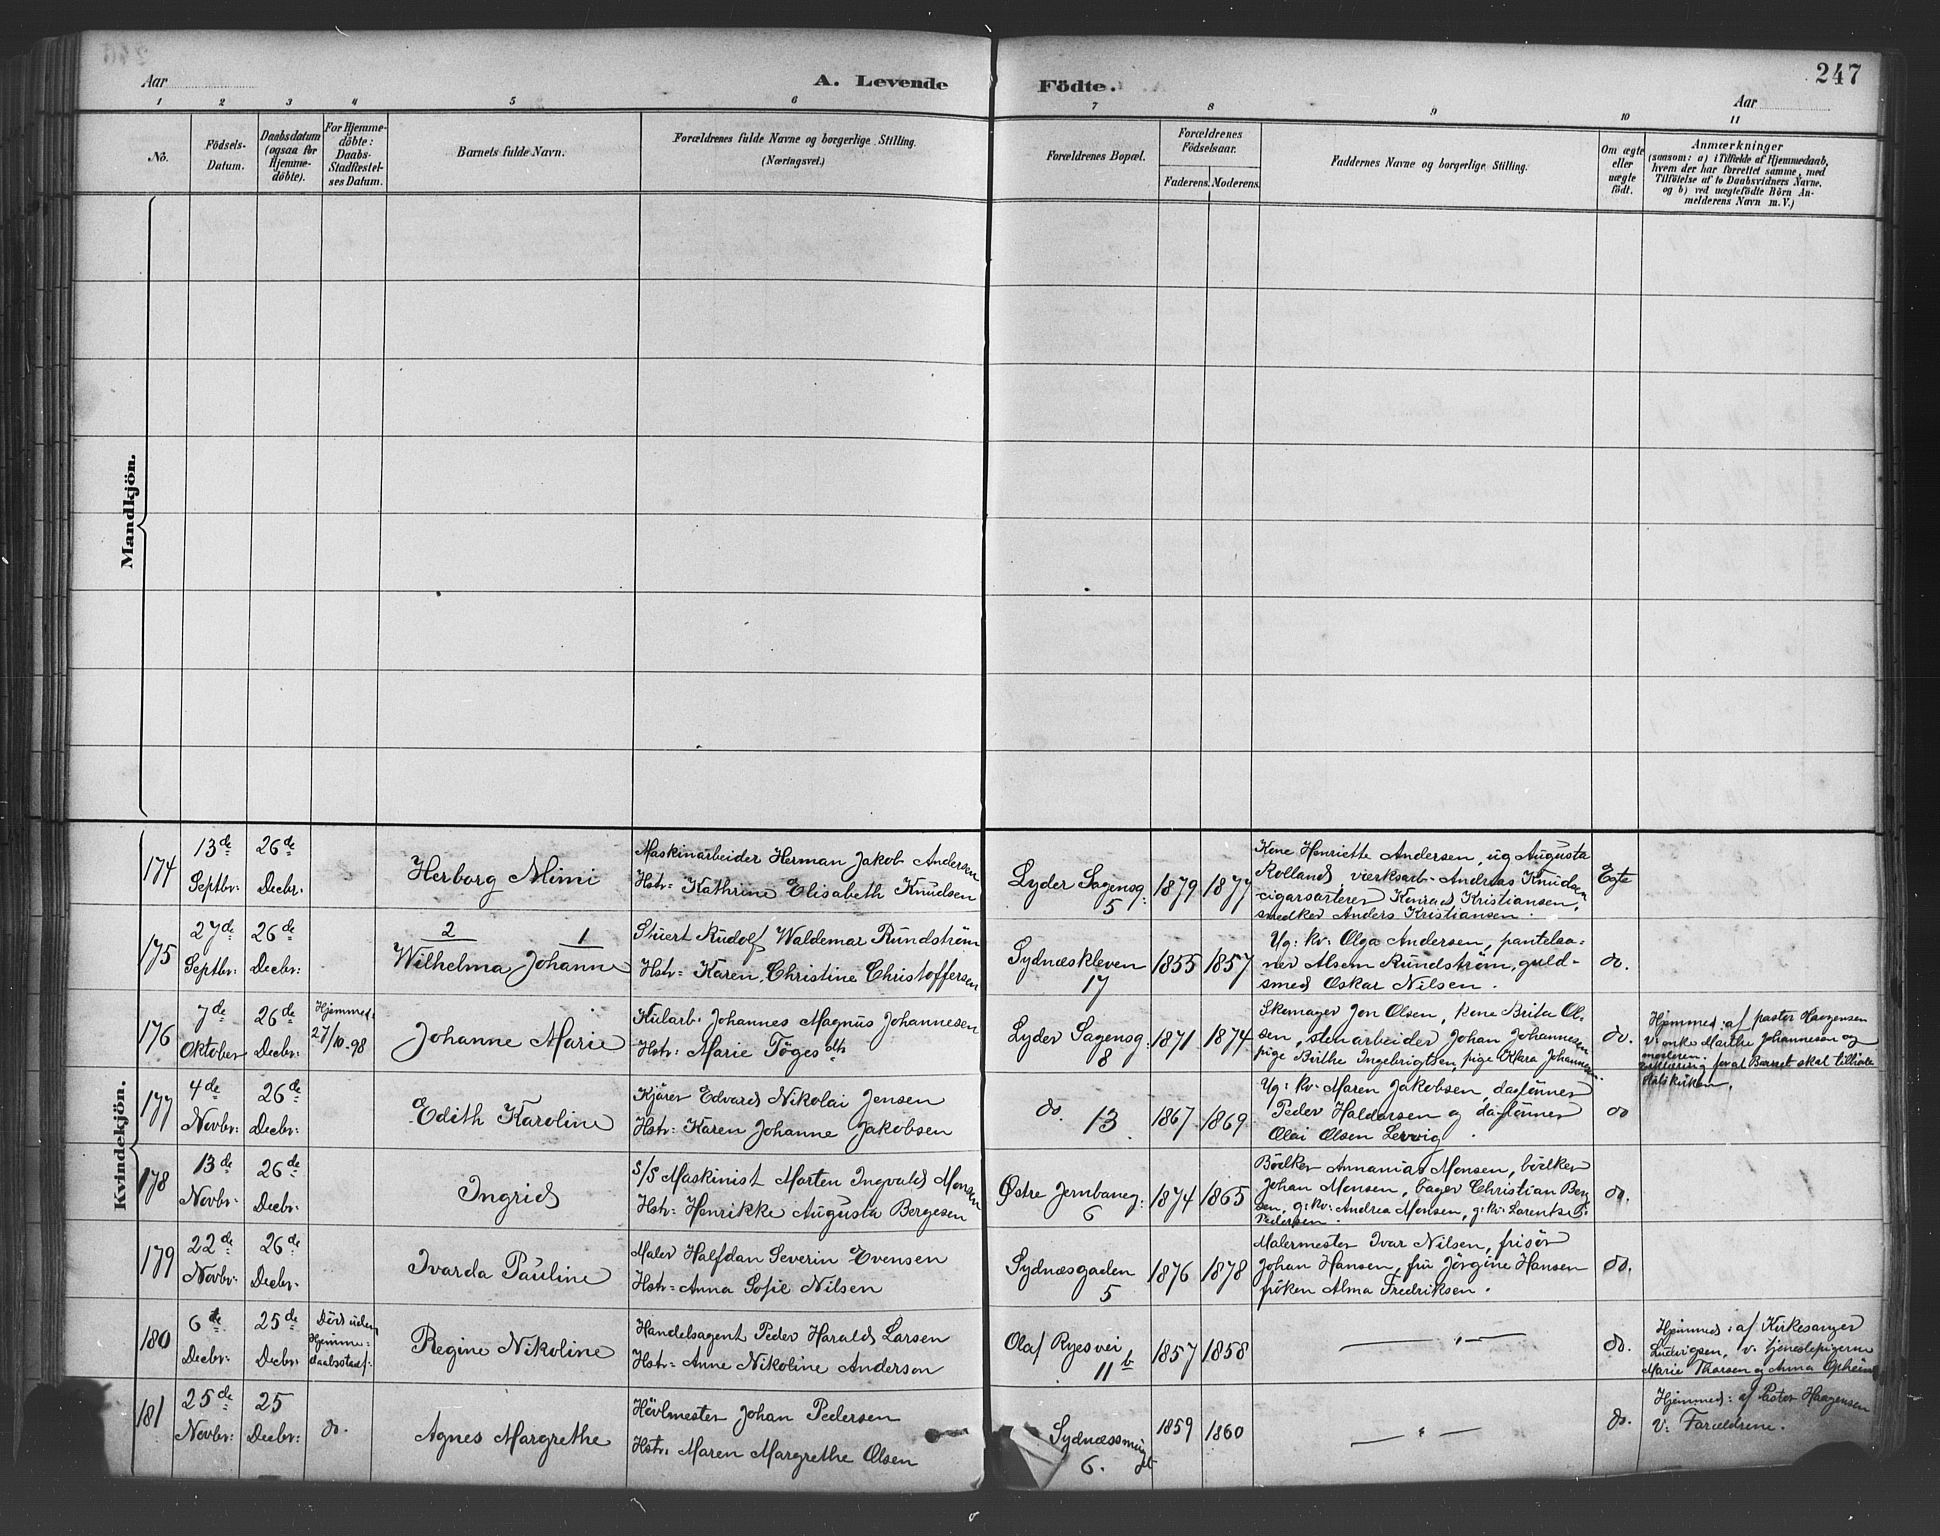 247
Aar
A. Levende
Födte.
Aar
1 2 3 4 5 6 7 8 9 10 11
No.
Födsels-
Datum.
Daabsdatum
(ogsaa for
Hjemme-
döbte).
For Hjemme-
döbte:
Daabs-
Stadfæstel-
ses Datum.
Barnets fulde Navn.
Forældrenes fulde Navne og borgerlige Stilling.
(Næringsvei.)
Forældrenes Bopæl.
Forældrenes
Födselsaar.
Faderens. Moderens.
Faddernes Navne og borgerlige Stilling.
Om ægte
eller
uægte
födt.
Anmærkninger
(saasom: a) i Tilfælde af Hjemmedaab,
hvem der har forrettet samme, med
Tilföielse af to Daabsvidners Navne,
og b) ved uægtefödte Börn An-
melderens Navn m.V.)
Mandkjön.
Kvindekjön.
174
13de
Septbr:
26de
Decbr:
Herborg Mimi
Maskinarbeider Herman Jakob Andersen
Hstr: Kathrine Elisabeth Knudsen
Lyder Sagensg:
5
1879
1877
Kone Henriette Andersen, ug Augusta
Rolland, værksarb. Andreas Knudsen,
cigarsorterer Konrad Kristiansen,
smedker Anders Kristiansen.
Egte
175
27de
Septbr:
26de
Decbr:
2 1
Wilhelma Johanne
Stuert Rudolf Waldemar Rundström
Hstr: Karen Christine Christoffersen
Sydnæskleven
17
1855
1857
Ug: kv: Olga Andersen, pantelaa-
ner Alsem Rundström, guld-
smed Oskar Nilsen.
do.
176
7de
Oktober
26de
Decbr:
Hjemmed:
27/10-98
Johanne Marie
Kularb: Johannes Magnus Johannesen
Hstr: Marie Töges dtr
Lyder Sagensg:
8
1871
1874
Skomager Jon Olsen, Kone Brita Ol-
sen, stenarbeider Johan Johannesen
pige Birthe Ingebrigtsen, pige Klara Johannesen.
do.
Hjemmed: af pastor Haagensen
v: enke Marthe Johannesen og
moderen.
Erklæring for at Barnet skal tilhöre
Statskirken.
177
4de
Novbr:
26de
Decbr:
Edith Karoline
Kjörer Edvard Nikolai Jensen
Hstr: Karen Johanne Jakobsen
do. 13.
1867
1869
Ug: kv: Maren Jakobsen, daglönner
Peder Haldorsen og daglönner
Olai Olsen Lervig.
do
178
13de
Novbr:
26de
Decbr:
Ingrid
S/S Maskinist Morten Ingvald Monsen
Hstr: Henrikke Augusta Bergesen
Østre Jernbaneg:
6
1874
1865
Bödker Annanias Monsen, bödker
Johan Monsen, bager Christian Berg
sen, g: kv: Andrea Monsen, g: kv: Lorentse
Pedersen.
do.
179
22de
Novbr:
26de
Decbr:
Ivarda Pauline
Maler Halfdan Severin Evensen
Hstr: Anna Sofie Nilsen
Sydnæsgaden
5
1876
1878
Malermester Ivar Nilsen, frisör
Johan Hansen, frü Jörgine Hansen
fröken Alma Fredriksen.
do.
180
6te
Decbr:
25de
Decbr:
Död uden
Hjemme-
daabsstadf:
Regine Nikoline
Handelsagent Peder Harald Larsen
Hstr: Anne Nikoline Anderson
Olaf Ryesvei
11b
1857
1858
do.
Hjemmed: af Kirkesanger
Ludvigsen, v. tjenestepigerne
Marie Thorsen og Anna Opheim
181
25de
Novbr:
25
Decbr:
do.
Agnes Margrethe
Hövlmester Johan Pedersen
Hstr: Maren Margrethe Olsen
Sydnæssmug
6. gt
1859
1860
do.
Hjemmed: af Pastor Haagensen
V: Forældrene.